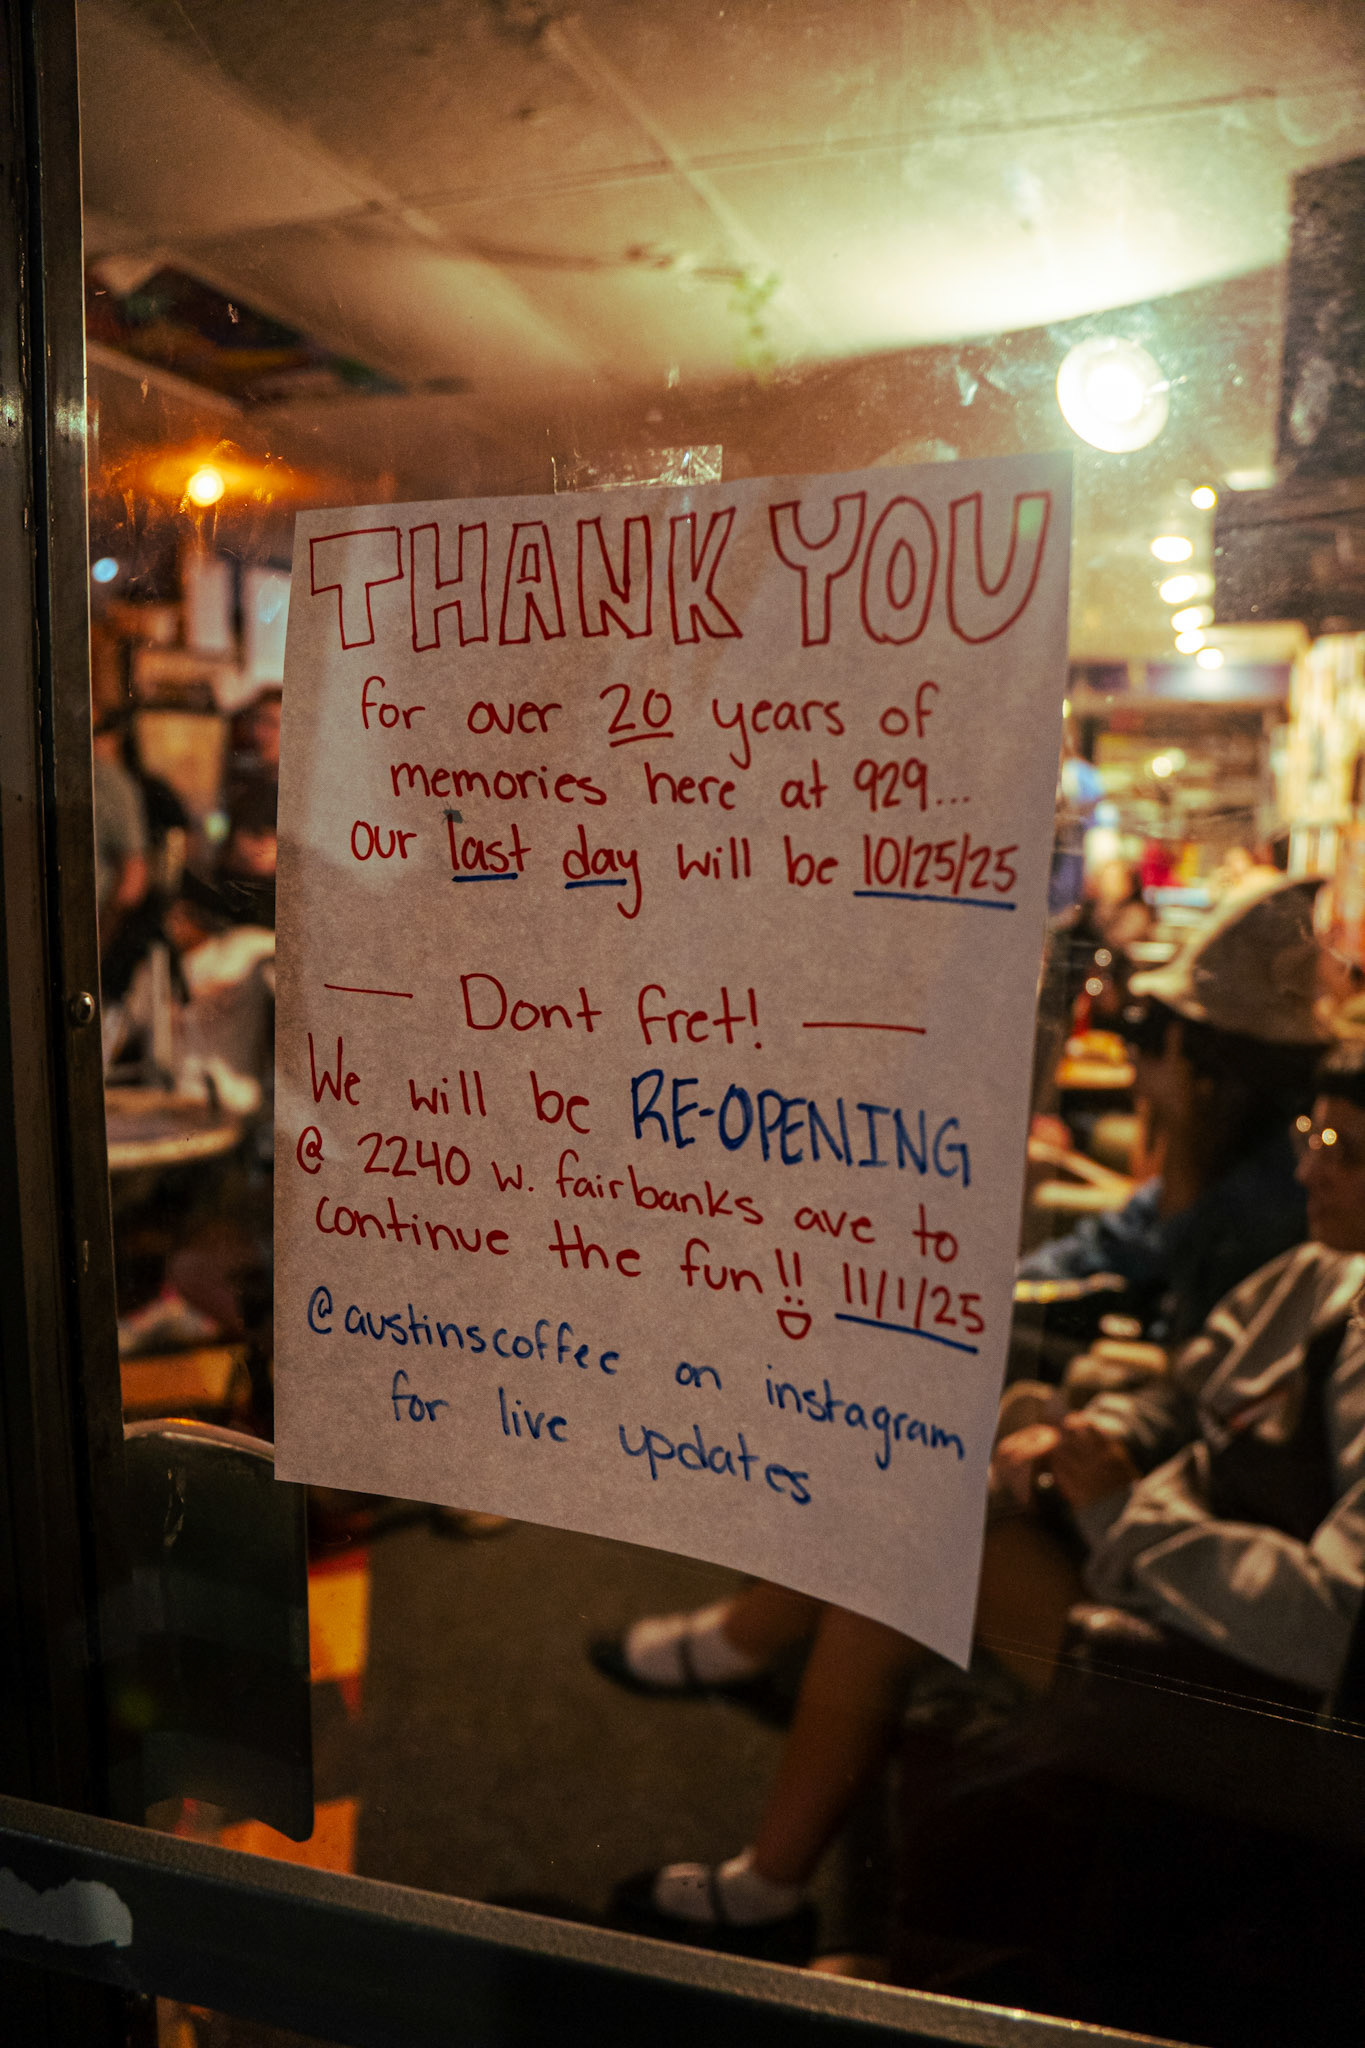 THANK YOU
for over 20 years of
memories here at 929...
our last day will be 10/25/25
— Dont fret! —
We will be RE-OPENING
@ 2240 w. fairbanks ave to
continue the fun!! 11/1/25
@austinscoffee on instagram
for live updates